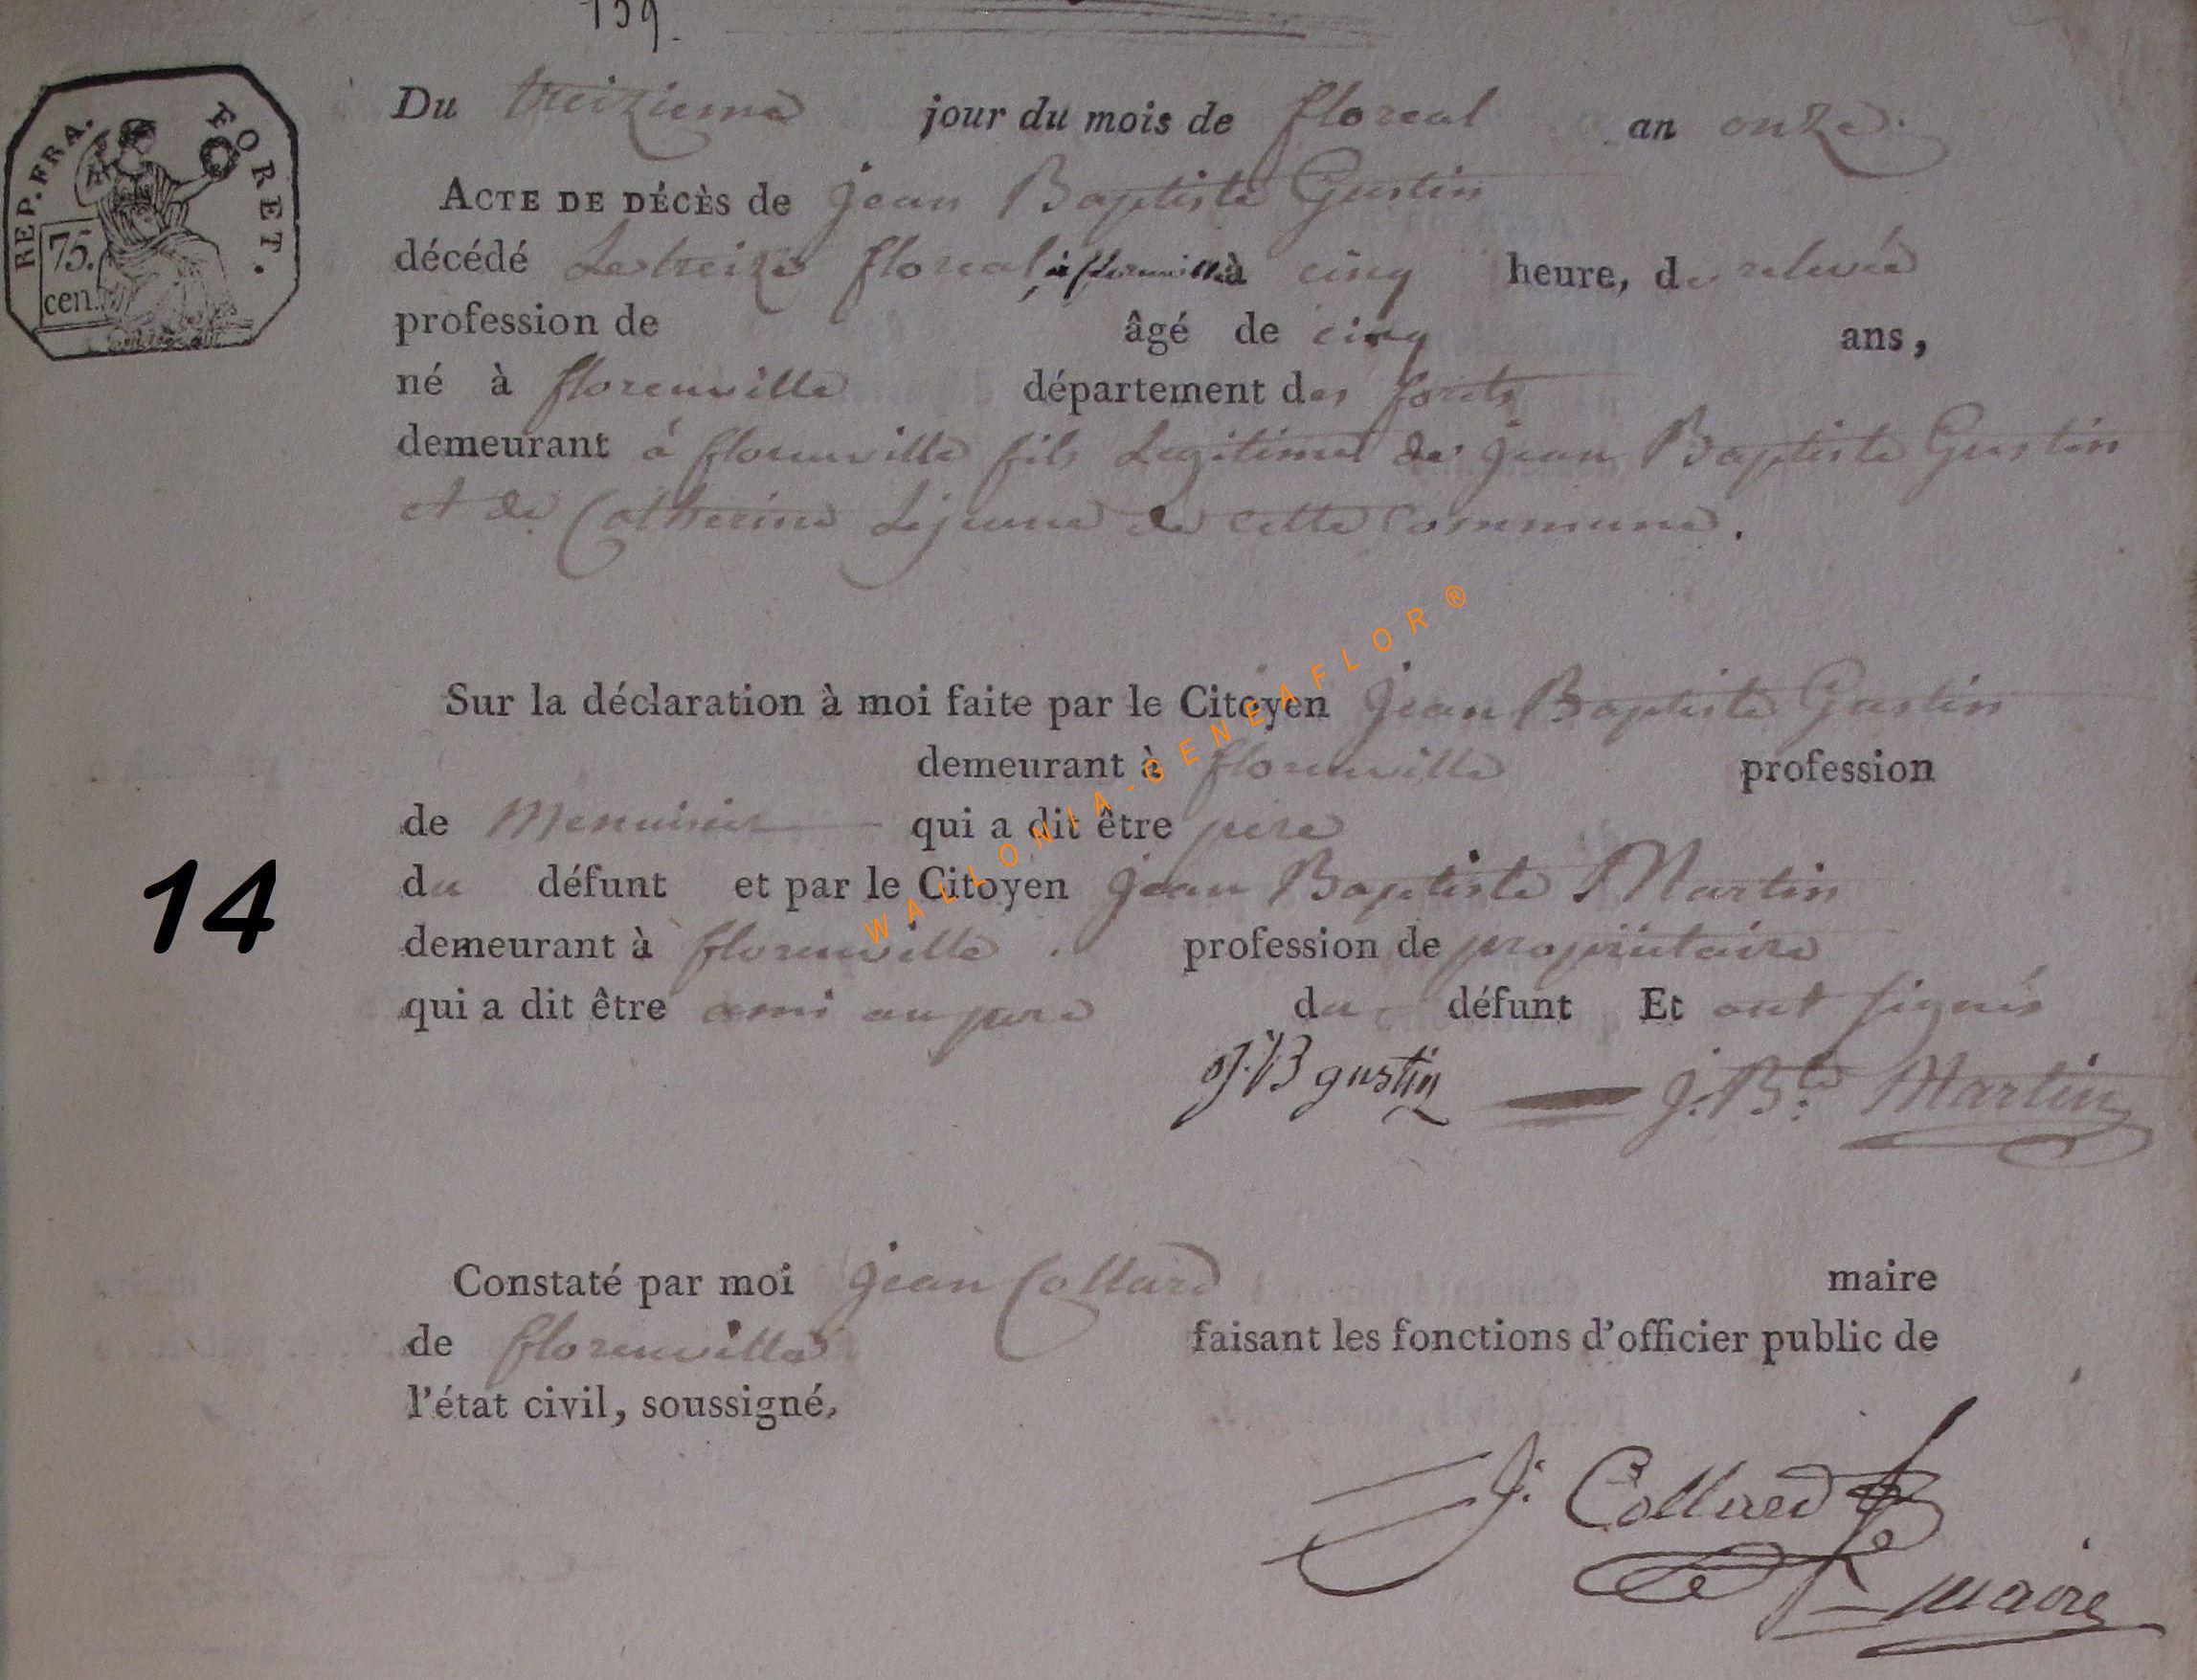 159.
REP. FRA. FORET.
75.
cen.
Du treizieme jour du mois de floreal an onze.
ACTE DE DÉCÈS de Jean Baptiste Gustin
décédé Le treize floreal à florenville à cinq heure, de relevée
profession de âgé de cinq ans,
né à florenville département des forêts
demeurant à florenville fils Legitime de Jean Baptiste Gustin
et de Catherine Lejeune de cette Commune.
Sur la déclaration à moi faite par le Citoyen Jean Baptiste Gustin
demeurant à florenville profession
de Menuisier qui a dit être pere
du défunt et par le Citoyen Jean Baptiste Martin
demeurant à florenville . profession de propriétaire
qui a dit être ami au pere du défunt Et ont signés
J. B gustin J. Bte Martin
Constaté par moi Jean Collard maire
de florenville faisant les fonctions d'officier public de
l'état civil, soussigné,
J. Collard
maire
14
WALLONIA-GENEAFLOR®